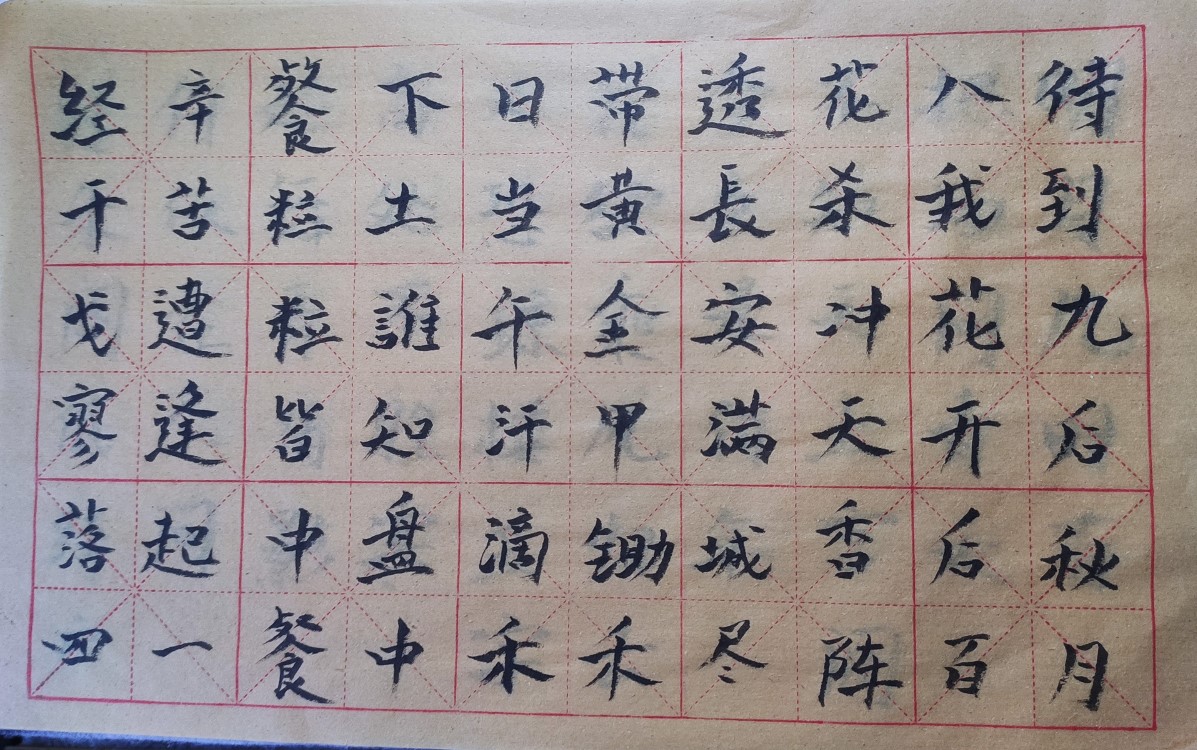 待到九后秋月
八我花开后百
花杀冲天香阵
透長安满城尽
带黄金甲锄禾
日当午汗滴禾
下土誰知盘中
餐粒粒皆中餐
辛苦遭逢起一
经干戈寥落四